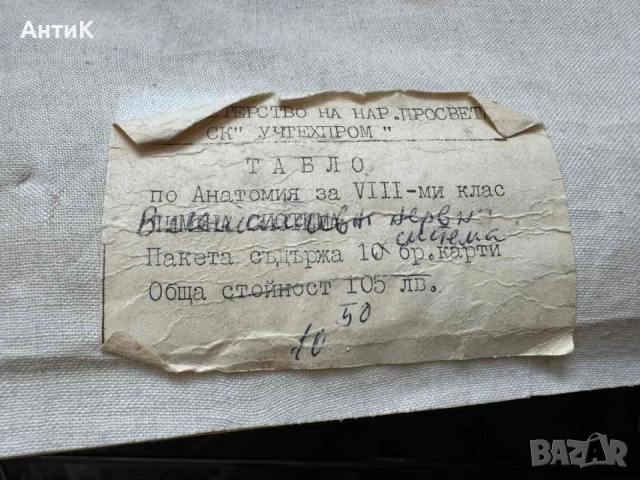 АнтиК
ТЕРСТВО НА НАР.ПРОСВЕТА
СК" УЧТЕХПРОМ "
ТАБЛО
по Анатомия за VIII-ми клас
нервна
система
Пакета съдържа 10 бр.карти
Обща стойност 105 лв.
50
10
BAZAR